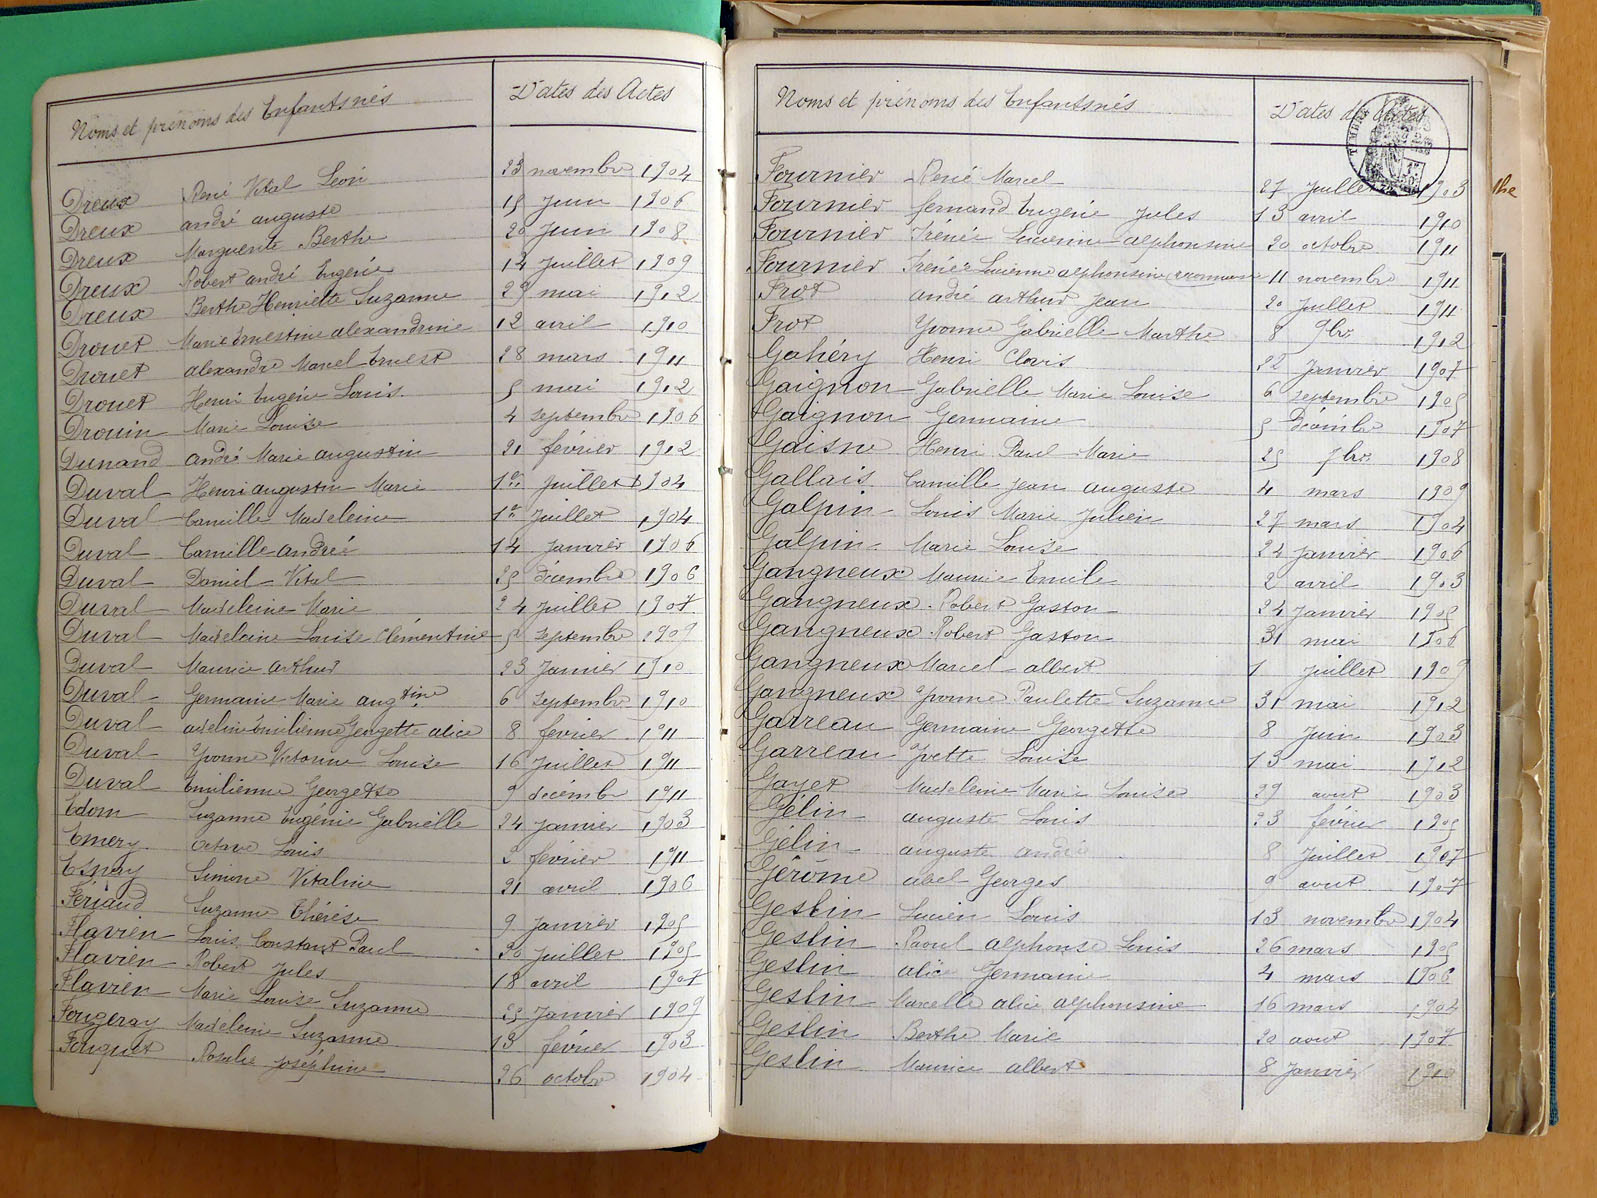 Noms et prénoms des Enfants nés Dates des Actes
Dreux René Vital Léon 23 novembre 1904
Dreux andré auguste 15 Juin 1906
Dreux Marguerite Berthe 20 Juin 1908
Dreux Robert andré Eugène 14 Juillet 1909
Dreux Berthe Henriette Suzanne 29 mai 1912
Drouet Marie Ernestine alexandrine 12 avril 1910
Drouet alexandre Marcel Ernest 28 mars 1911
Drouet Henri Eugène Louis 5 mai 1912
Drouin Marie Louise 4 septembre 1906
Dunand andré Marie augustin 21 février 1912
Duval Henri augustin Marie 1er Juillet 1904
Duval Camille Madeleine 1er Juillet 1904
Duval Camille andrée 14 Janvier 1906
Duval Daniel Vital 25 décembre 1906
Duval Madeleine Marie 24 Juillet 1907
Duval Madeleine Louise Clémentine 5 septembre 1909
Duval Maurice arthur 23 Janvier 1910
Duval Germaine Marie augtine 6 Septembre 1910
Duval adeline Emilienne Georgette alice 8 février 1911
Duval Yvonne Victorine Louise 16 Juillet 1911
Duval Emilienne Georgette 9 décembre 1911
Edom Suzanne Eugénie Gabrielle 24 Janvier 1903
Emery Octave Louis 2 février 1911
Esnay Simone Vitaline 21 avril 1906
Fériaud Suzanne Thérèse 9 Janvier 1905
Flavien Louis Constant Paul 30 Juillet 1905
Flavien Robert Jules 18 avril 1907
Flavien Marie Louise Suzanne 25 Janvier 1909
Fougeray Madeleine Suzanne 13 février 1903
Fouquet Rosalie joséphine 26 octobre 1904
Noms et prénoms des Enfants nés Dates des Actes
Fournier René Marcel 27 Juillet 1903
Fournier fernand Eugène Jules 13 avril 1910
Fournier Irénée Lucienne alphonsine 20 octobre 1911
Fournier Irénée Lucienne alphonsine 11 novembre 1911
Frot andré arthur Jean 20 Juillet 1911
Frot Yvonne Gabrielle Marthe 8 9bre 1912
Gahéry Henri Clovis 22 Janvier 1907
Gaignon Gabrielle Marie Louise 6 septembre 1905
Gaignon Germaine 5 décembre 1907
Gaisne Henri Paul Marie 25 7bre 1908
Gallais Camille jean auguste 4 mars 1909
Galpin Louis Marie Julien 27 mars 1904
Galpin Marie Louise 24 Janvier 1906
Gangneux Maurice Emile 2 avril 1903
Gangneux Robert Gaston 24 Janvier 1905
Gangneux Robert Gaston 31 mai 1906
Gangneux Marcel albert 1 Juillet 1909
Gangneux Yvonne Paulette Suzanne 31 mai 1912
Garreau Germaine Georgette 8 Juin 1903
Garreau Yvette Louise 13 mai 1912
Gayet Madeleine Marie Louise 29 aout 1903
Gélin auguste Louis 23 février 1905
Gélin auguste andré 8 Juillet 1907
Gérôme abel Georges 9 aout 1907
Geslin Lucien Louis 13 novembre 1904
Geslin Raoul alphonse Louis 26 mars 1905
Geslin alice Germaine 4 mars 1906
Geslin Marcelle alice alphonsine 16 mars 1904
Geslin Berthe Marie 20 aout 1907
Geslin Maurice albert 8 Janvier 1910